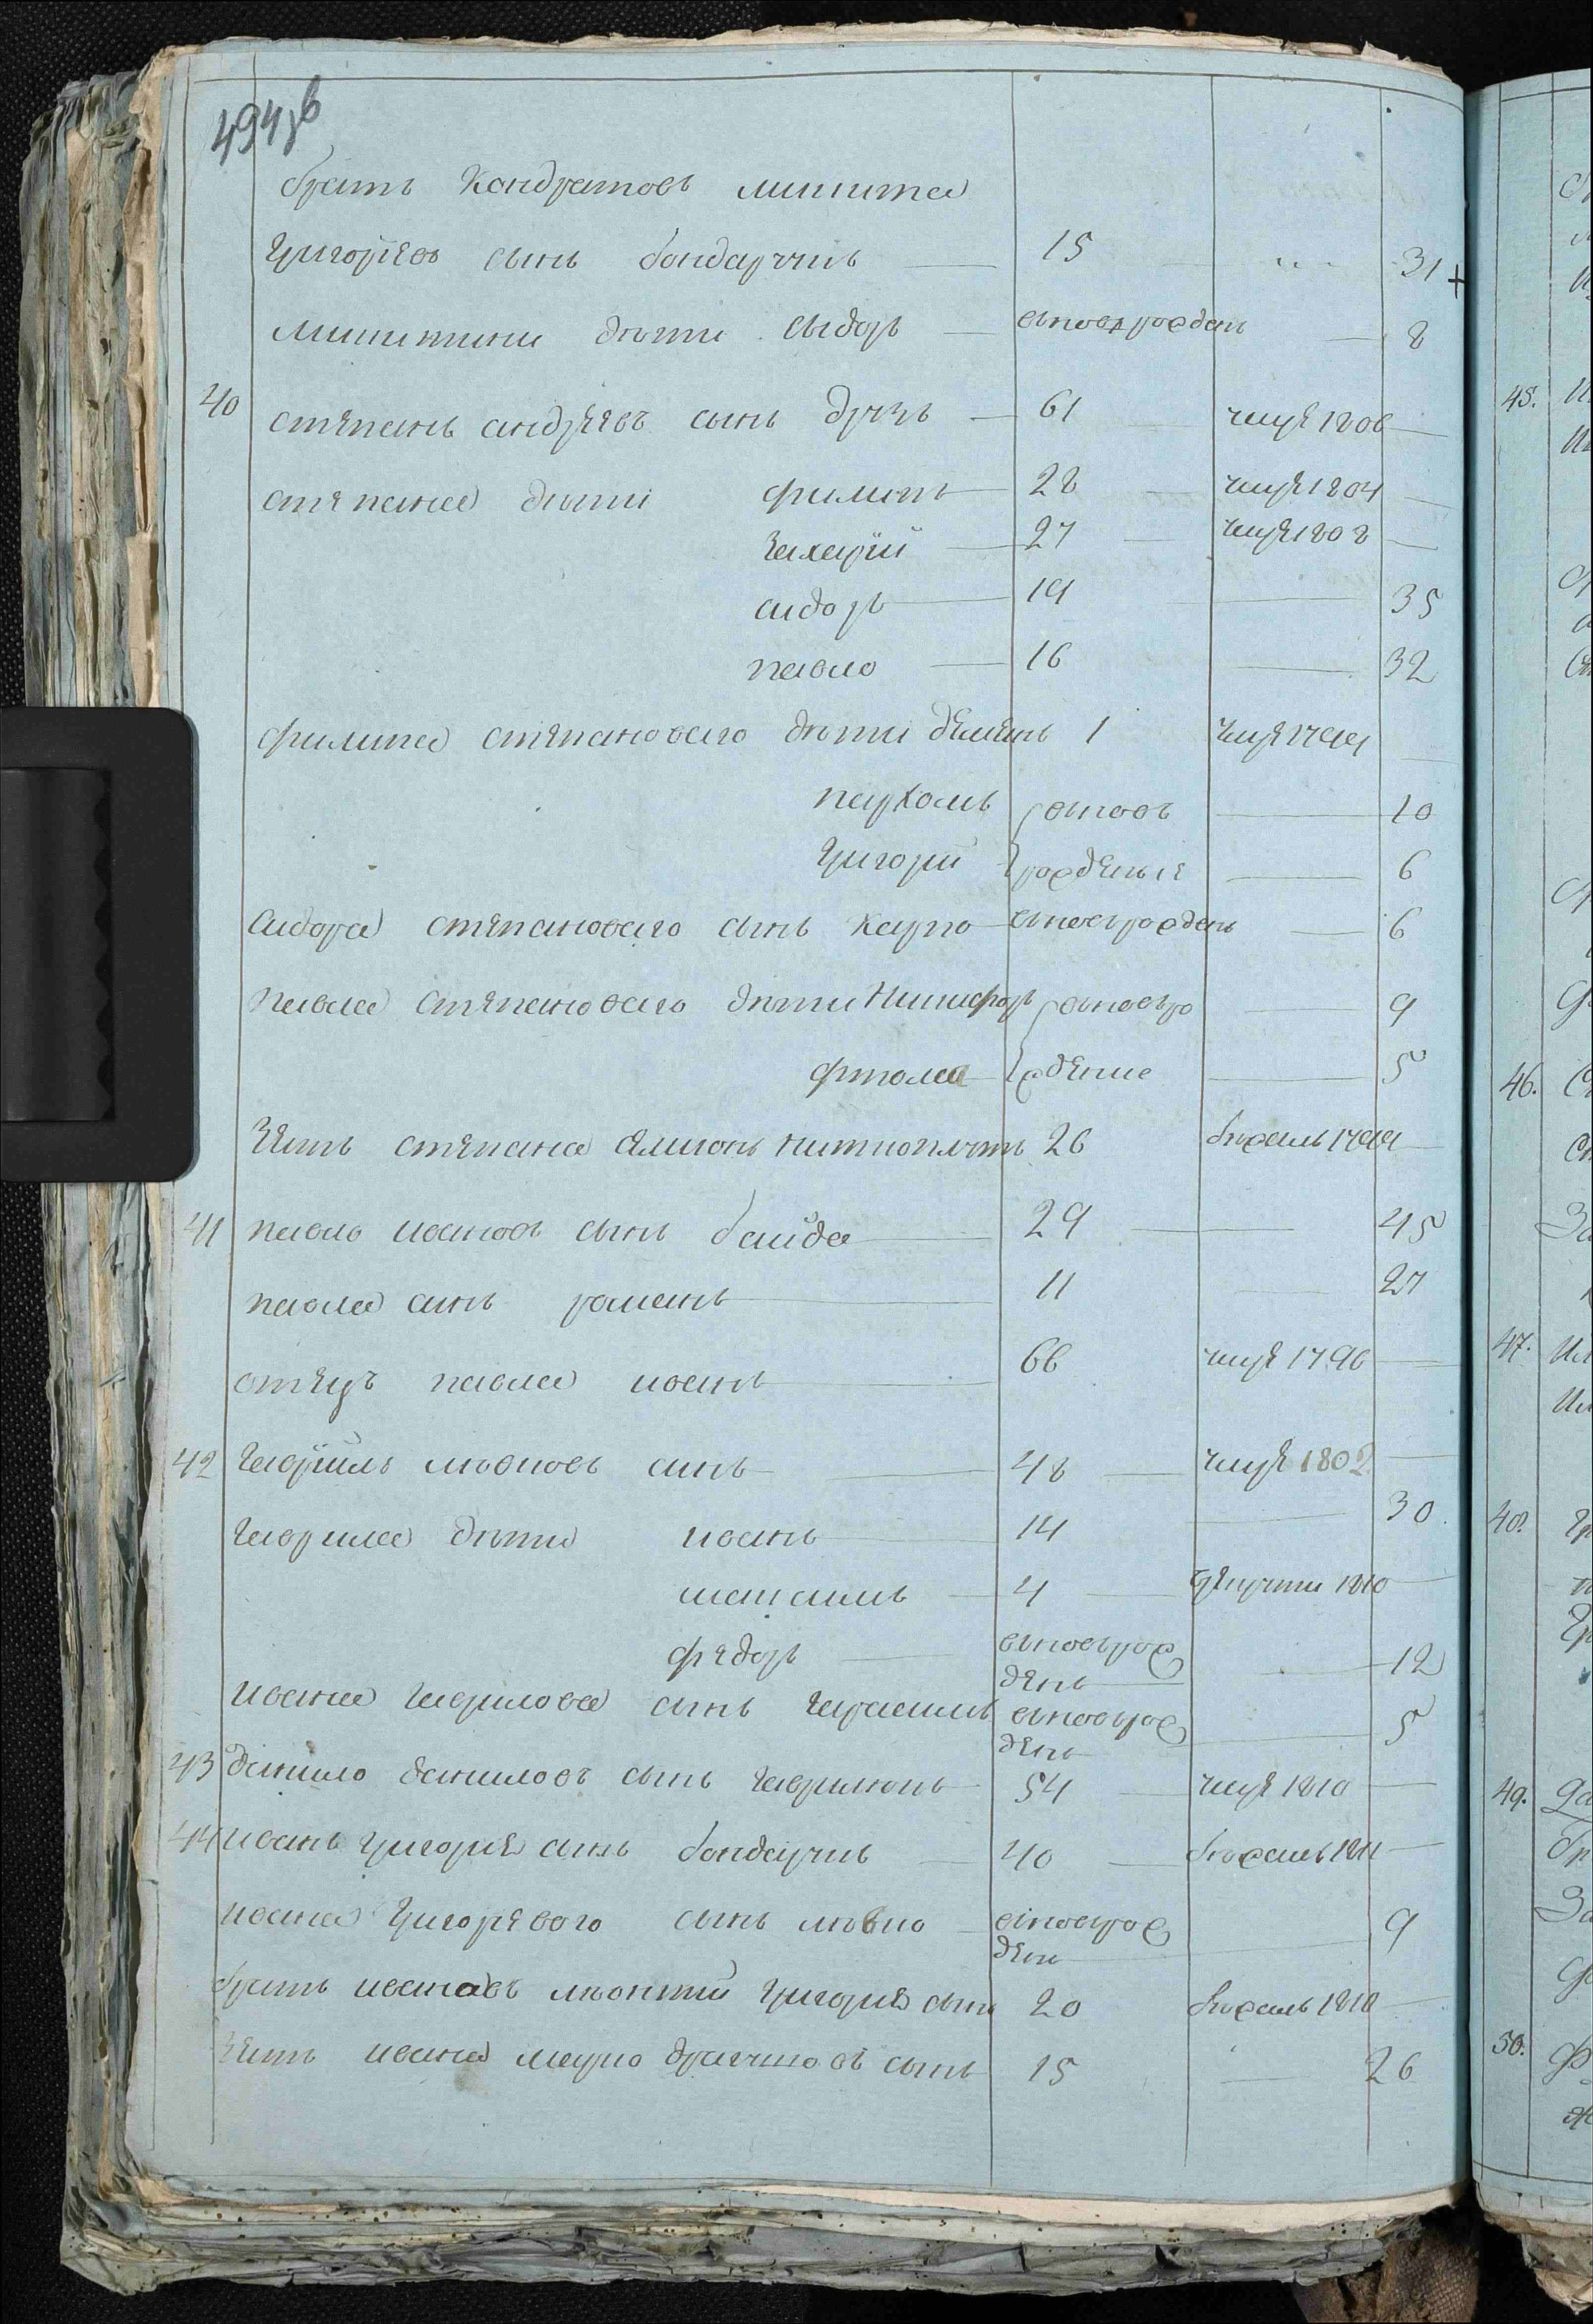 494зв
братъ Кондратовъ микита
Григорьевъ сынъ бондарчукъ 15 31 +
микитини дѣти сыдоръ вновьрожденъ 8
40 степанъ андреевъ сынъ друзь 61 умре 1806
степана дѣти филипъ 28 умре 1804
Захарій 27 умре 1808
сидоръ 19 35
павло 16 32
филипа степановаго дѣти демянъ 1 умре 1799
пархомъ вновь 10
Григорій рожденые 6
сидора степановаго сынъ карпо вновьрожденъ 6
павла степановаго дѣти Никифоръ вновьро 9
фтома ждение 5
Зять степана 26 бѣжалъ 1799
41 павло ивановъ сынъ байда 29 45
павла сынъ романъ 11 27
отецъ павла иванъ 66 умре 1796
42 Гаврїилъ сынъ 48 умре 1802
Гаврила дѣти иванъ 14 30
максимъ 4 рекрути 1810
федоръ вновьрож
денъ 12
ивана Гаврилова сынъ Герасимъ вновьрож
денъ 5
43 данило даниловъ сынъ Гаврилюкъ 54 умре 1810
44 иванъ григорьев сынъ бондарукъ 40 бѣжалъ 1811
ивана Григоревого сынъ вновьрож
ден 9
братъ ивановъ леонтий григорьев сынъ 20 бѣжалъ 1810
Зять ивана сынъ 15 26
45.
46.
47.
48.
49.
50.